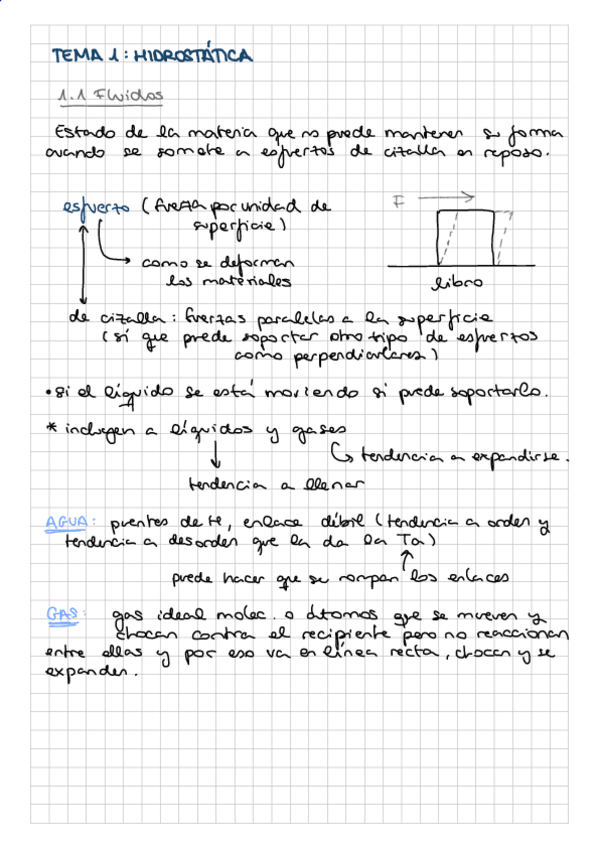 TEMA 1: HIDROSTÁTICA
1.1 Fluidos
Estado de la materia que no puede mantener su forma
cuando se somete a esfuertos de cizalla en reposo.
esfuerzo (fuerza por unidad de
superficie)
F
como se deforman
los materiales
libro
de cizalla: fuerzas paralelas a la superficie
(sí que puede soportar otro tipo de esfuertos
como perpendiculares)
• si el líquido se está moviendo si puede soportarlo.
* incluyen a líquidos y gases
tendencia a expandirse.
tendencia a llenar
AGUA: puentes de H, enlace débil (tendencia a orden y
tendencia a desorden que la da la Ta)
puede hacer que se rompan los enlaces
GAS: gas ideal molec. o átomos que se mueven y
chocan contra el recipiente pero no reaccionan
entre ellas y por eso va en línea recta, chocan y se
expanden.